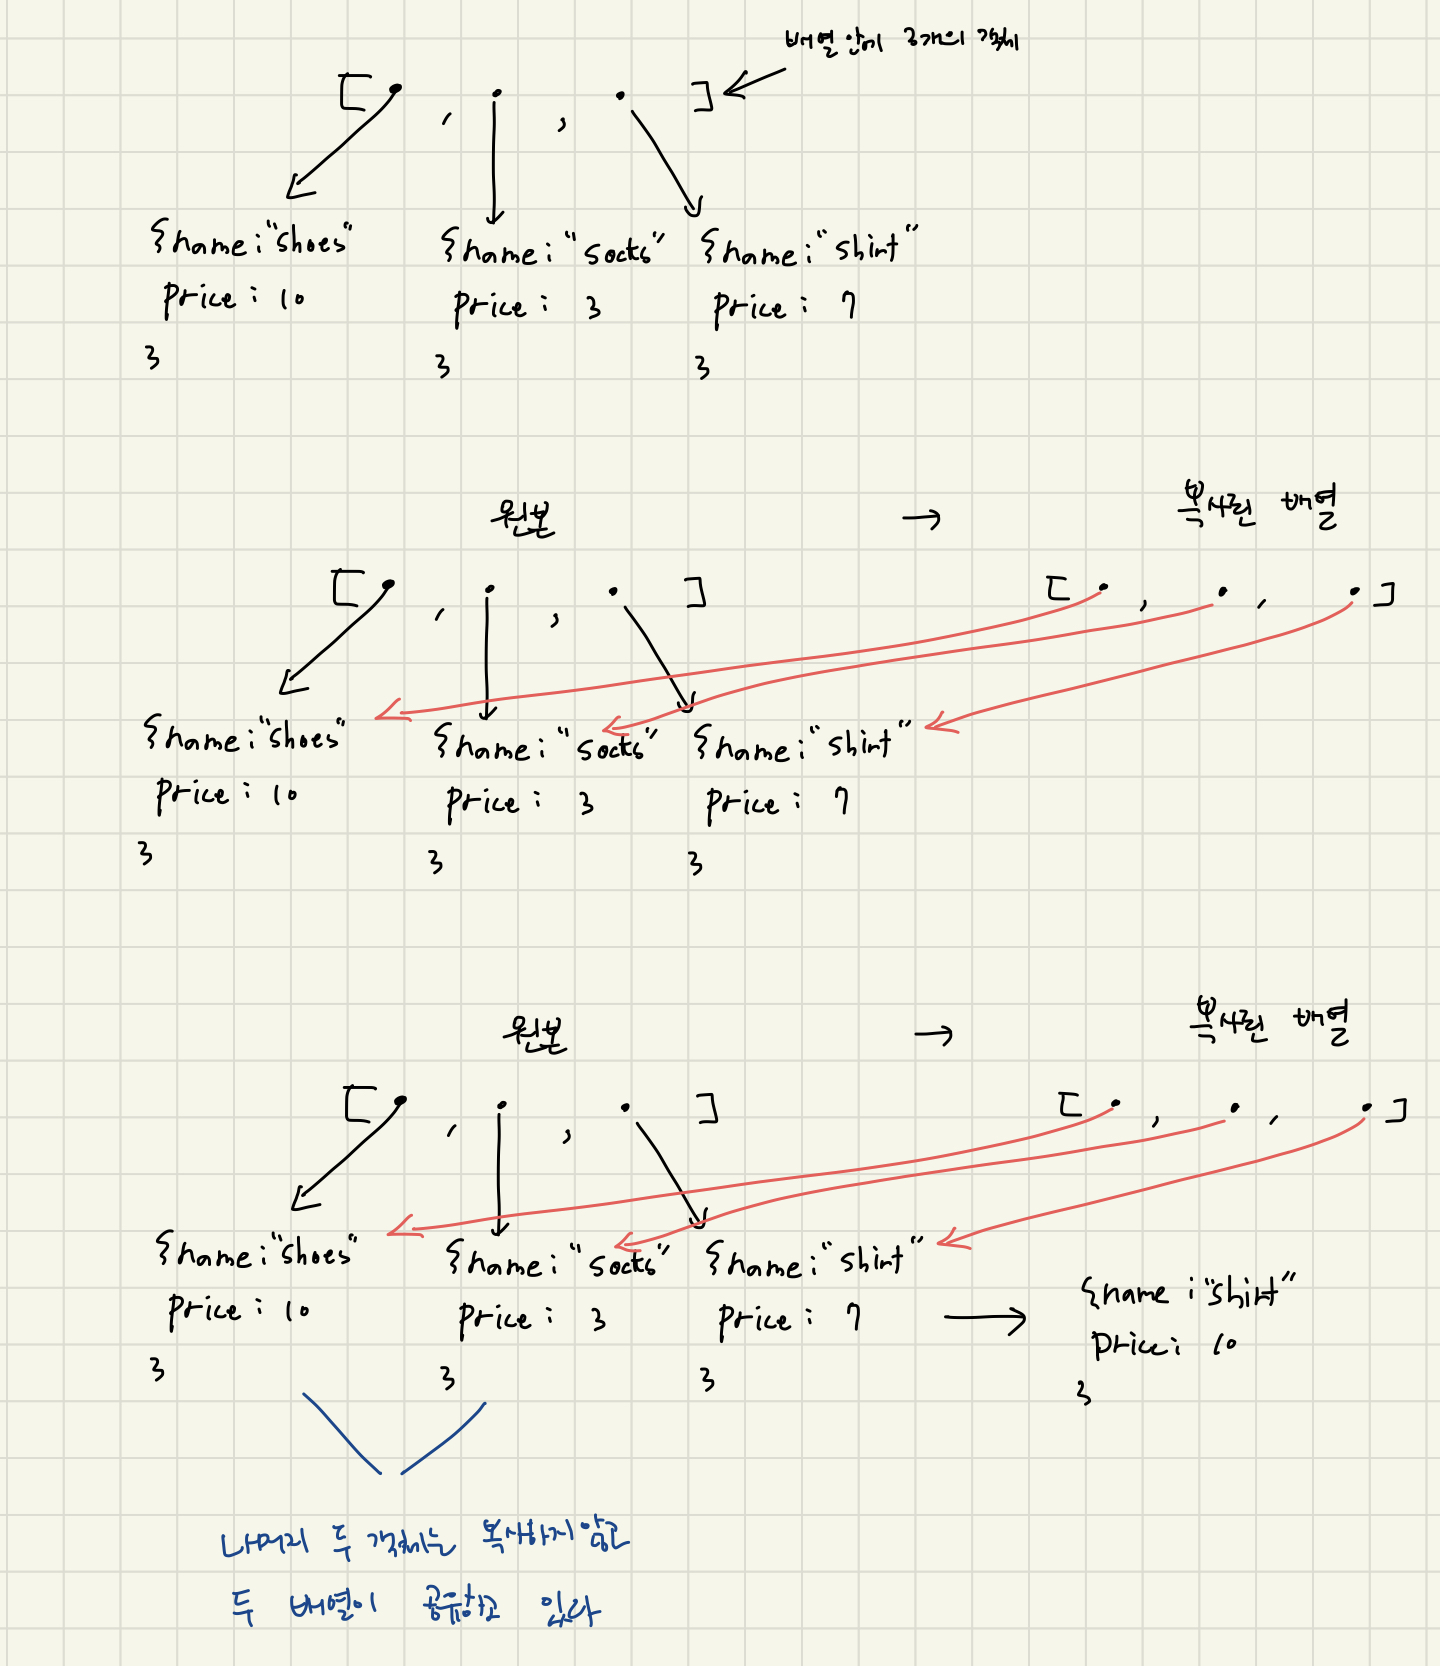 배열 안에 3개의 객체
[ • , • , • ]
{name:"shoes" {name:"socks" {name:"shirt"
price: 10 price: 3 price: 7
} } }
원본 → 복사된 배열
[ • , • , • ] [ • , • , • ]
{name:"shoes" {name:"socks" {name:"shirt"
price: 10 price: 3 price: 7
} } }
원본 → 복사된 배열
[ • , • , • ] [ • , • , • ]
{name:"shoes" {name:"socks" {name:"shirt" {name:"shirt"
price: 10 price: 3 price: 7 → price: 10
} } } }
나머지 두 객체는 복사하지 않고
두 배열이 공유하고 있다